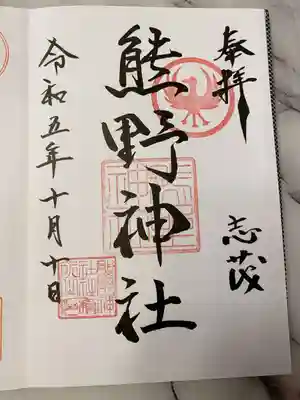 奉拝
志茂
熊野神社
令和五年十月十日